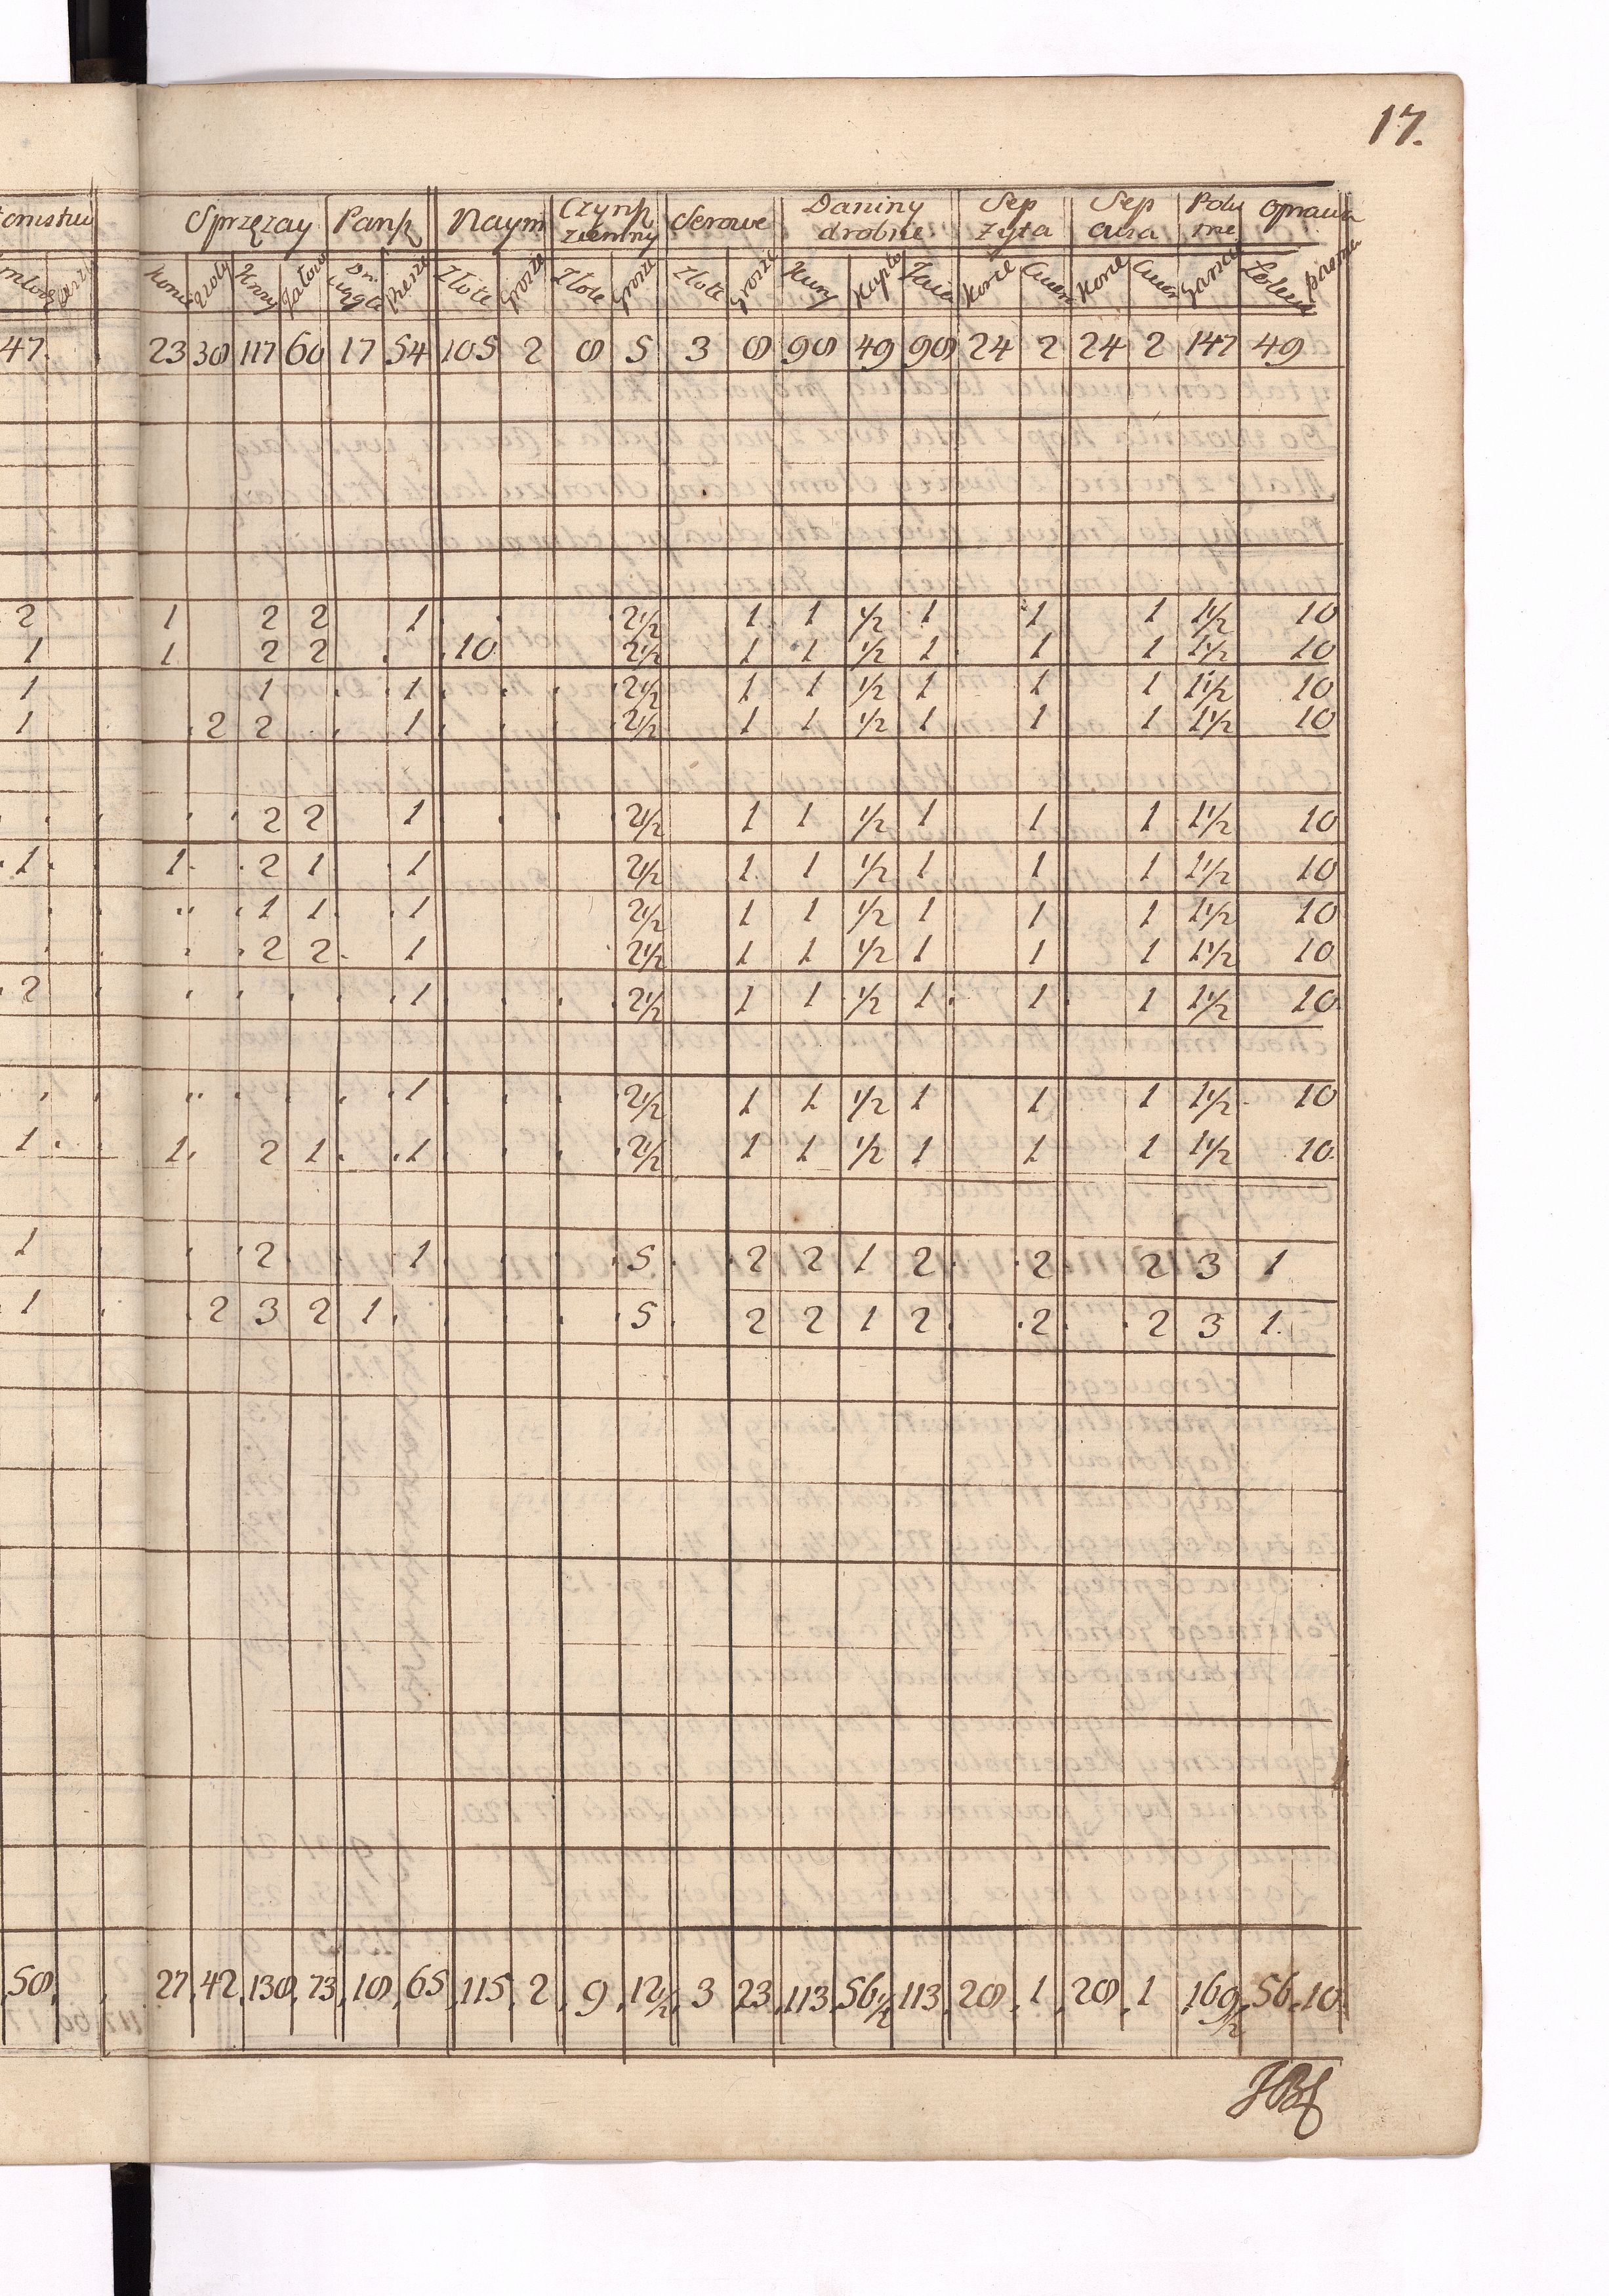 17.
Sprzęzay Panſz Naym Czynſz ziemny Serowe Daniny drobne Sep zyta Sep owsa Polu zne oprawa
Konie Woły Krowy Jałow Piesze Złote Grosze Złote Grosze Złote Grosze Kury Kapło Jaia Korce Korce Garnce
47. 23 38 117 60 17 54 105 2 8 5 3 8 98 49 98 24 2 24 2 147 49
2 1 2 2 1 2½ 1 1 ½ 1 1 1 1½ 10
1 1 2 2 10 2½ 1 1 ½ 1 1 1 1½ 10
1 1 1 2½ 1 1 ½ 1 1 1 1½ 10
1 2 2 1 2½ 1 1 ½ 1 1 1 1½ 10
2 2 1 2½ 1 1 ½ 1 1 1 1½ 10
1 1 2 1 1 2½ 1 1 ½ 1 1 1 1½ 10
1 1 1 2½ 1 1 ½ 1 1 1 1½ 10
2 2 1 2½ 1 1 ½ 1 1 1 1½ 10
2 1 2½ 1 1 ½ 1 1 1 1½ 10
1 2½ 1 1 ½ 1 1 1 1½ 10
1 1 2 1 1 2½ 1 1 ½ 1 1 1 1½ 10
1 2 1 5 2 2 1 2 2 2 3 1
1 2 3 2 1 5 2 2 1 2 2 2 3 1
58 27 42 138 73 18 65 115 2 9 12½ 3 23 113 56½ 113 28 1 28 1 169½ 56 10